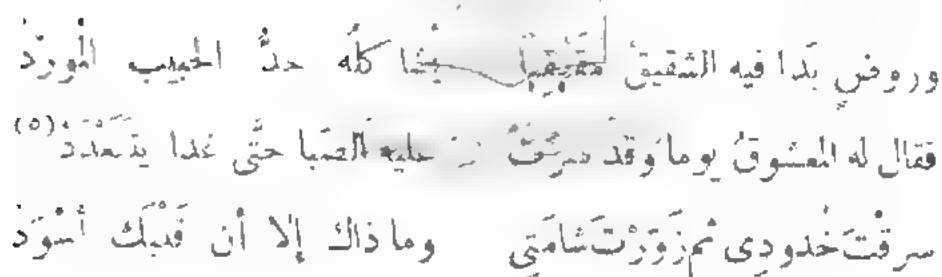 وروضٍ بَدَا فيه الشقيقُ يُشاكلُه خدُّ الحبيب المورَّدُ
فقال له المعشوقُ يوما وقد عليه الصَّبا حتَّى غدا (٥)
سرقْتَ خدودى ثم زَوَّرْتَ شامَتِى وما ذاك إلا أن قلبَك أسْوَدُ